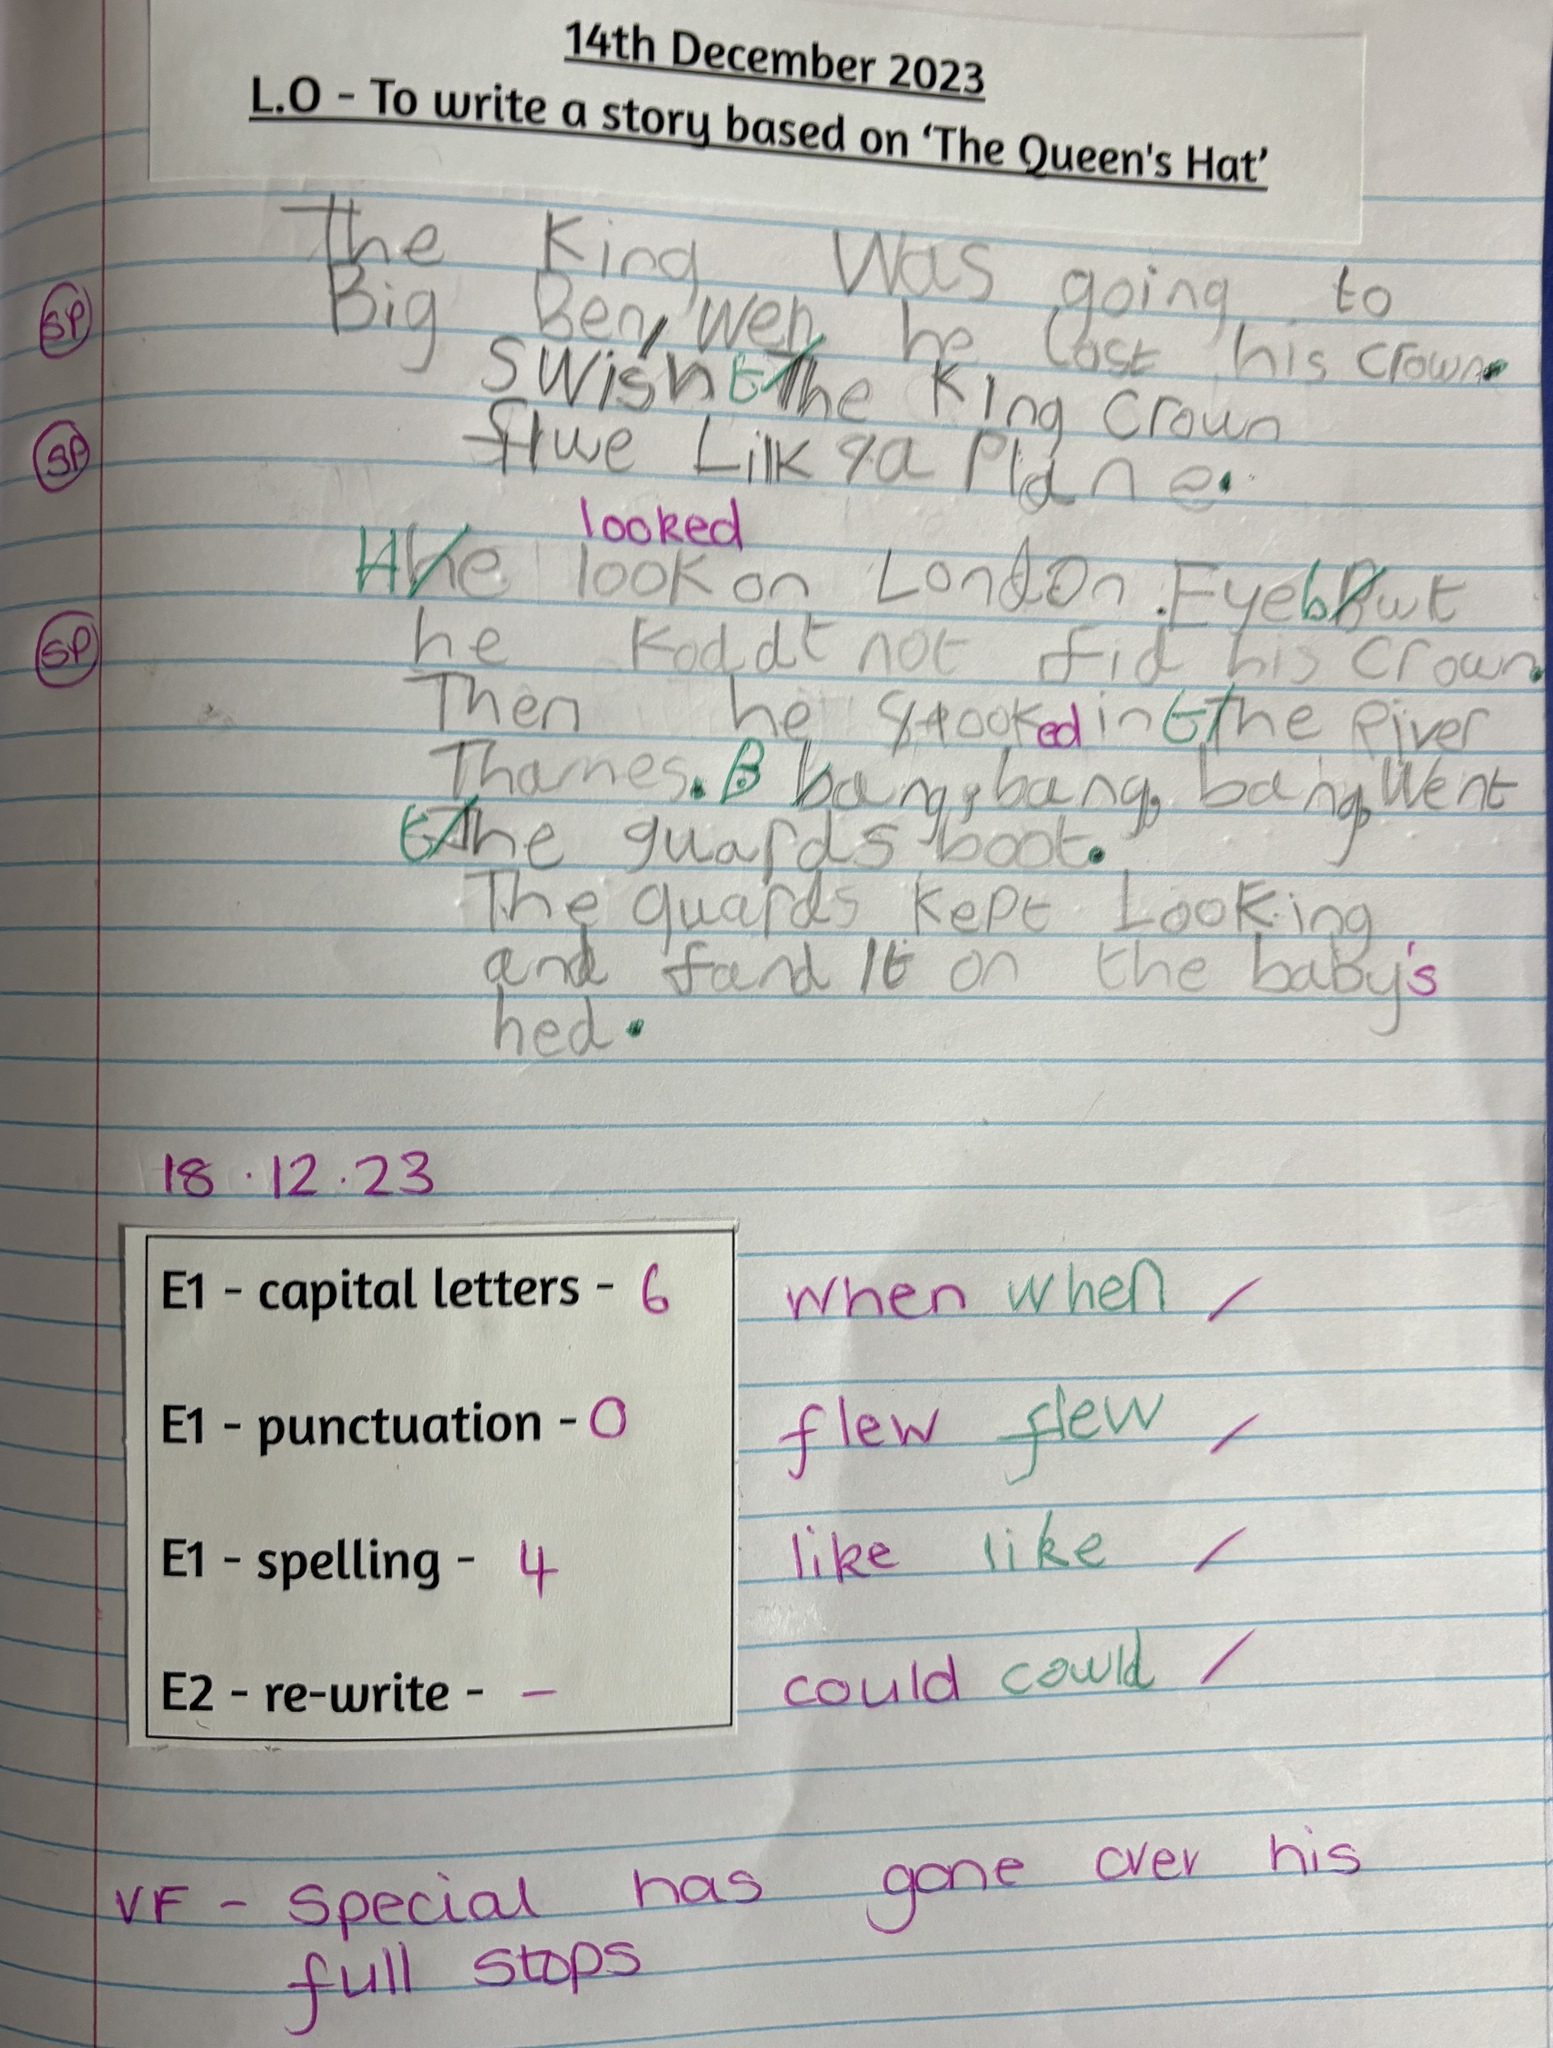 14th December 2023
L.O - To write a story based on ‘The Queen's Hat’
The King Was going to
SP Big Ben, wen he Lost his crown.
SWish the King Crown
SP flwe Lilk a Plane.
looked
He look on London Eye but
SP he Koddt not fid his Crown.
Then he looked in the River
Thames. B bang, bang, bang, Went
the guards boot.
The guards kept Looking
and fand It on the baby's
hed.
18.12.23
E1 - capital letters - 6 when when /
E1 - punctuation - 0 flew flew /
E1 - spelling - 4 like like /
E2 - re-write - – could could /
VF - Special has gone over his
full stops